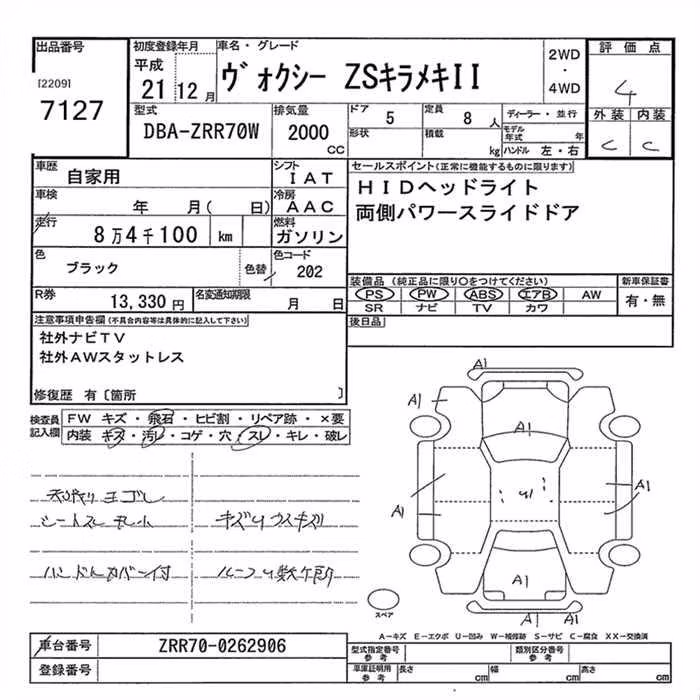 出品番号
[2209]
7127
初度登録年月
平成
21 12月
車名・グレード
ヴォクシー ZSキラメキII
2WD
・
4WD
評価点
4
外装 内装
C C
型式
DBA-ZRR70W
排気量
2000
CC
ドア 5
形状
定員 8 人
積載 kg
ディーラー・並行
モデル年式 年
ハンドル 左・右
車歴
自家用
シフト
IAT
車検
年 月( 日)
冷房
AAC
走行
8万4千100 km
燃料
ガソリン
色
ブラック
色替
色コード
202
R券
13,330円
名変通知期限
月 日
セールスポイント(正常に機能するものに限ります)
HIDヘッドライト
両側パワースライドドア
装備品(純正品に限り○をつけてください)
PS PW ABS エアB AW
SR ナビ TV カワ
新車保証書
有・無
後日品
注意事項申告欄(不具合内容等は具体的に記入して下さい)
社外ナビTV
社外AWスタットレス
修復歴 有〔箇所 〕
検査員
記入欄
FW キズ・飛石・ヒビ割・リペア跡・×要
内装 キズ・汚レ・コゲ・穴・スレ・キレ・破レ
天張りヨゴレ
シートスレ
キズUウスキズ
ハンドルカバー付
ルーフU数ヶ所
A1
A1
A1
A1
A1
A1
A1
A1
U1
スペア
A-キズ E-エクボ U-凹み W-補修跡 S-サビ C-腐食 XX-交換済
車台番号
ZRR70-0262906
登録番号
型式指定番号
参考
類別区分番号
参考
車庫証明用
参考
長さ cm
幅 cm
高さ cm